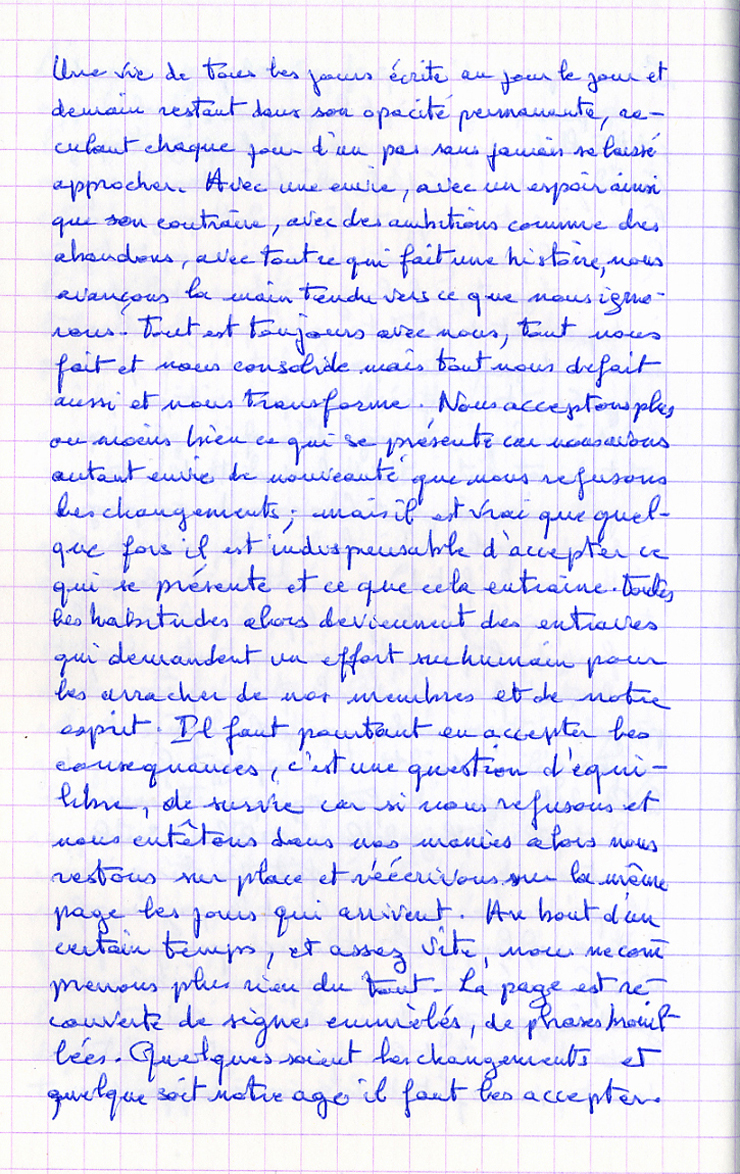 Une vie de tous les jours écrite au jour le jour et
demain restant dans son opacité permanante, re-
culant chaque jour d'un pas sans jamais se laissé
approcher. Avec une envie, avec un espoir ainsi
que son contraire, avec des ambitions comme des
abandons, avec tout ce qui fait une histoire, nous
avançons la main tendu vers ce que nous igno-
rons. Tout est toujours avec nous, tout nous
fait et nous consolide mais tout nous défait
aussi et nous transforme. Nous acceptons plus
ou moins bien ce qui se présente car nous avons
autant envie de nouveauté que nous refusons
les changements ; mais il est vrai que quel-
que fois il est indispensable d'accepter ce
qui se présente et ce que cela entraine. Toutes
les habitudes alors deviennent des entraves
qui demandent un effort surhumain pour
les arracher de nos membres et de notre
esprit. Il faut pourtant en accepter les
consequances, c'est une question d'équi-
libre, de survie car si nous refusons et
nous entêtons dans nos manies alors nous
restons sur place et réécrivons sur la même
page les jours qui arrivent. Au bout d'un
certain temps, et assez vite, nous ne com
prenons plus rien du tout. La page est re-
couverte de signes emmêlés, de phrases brouil
lées. Quelques soient les changements et
quelque soit notre age il faut les accepter.